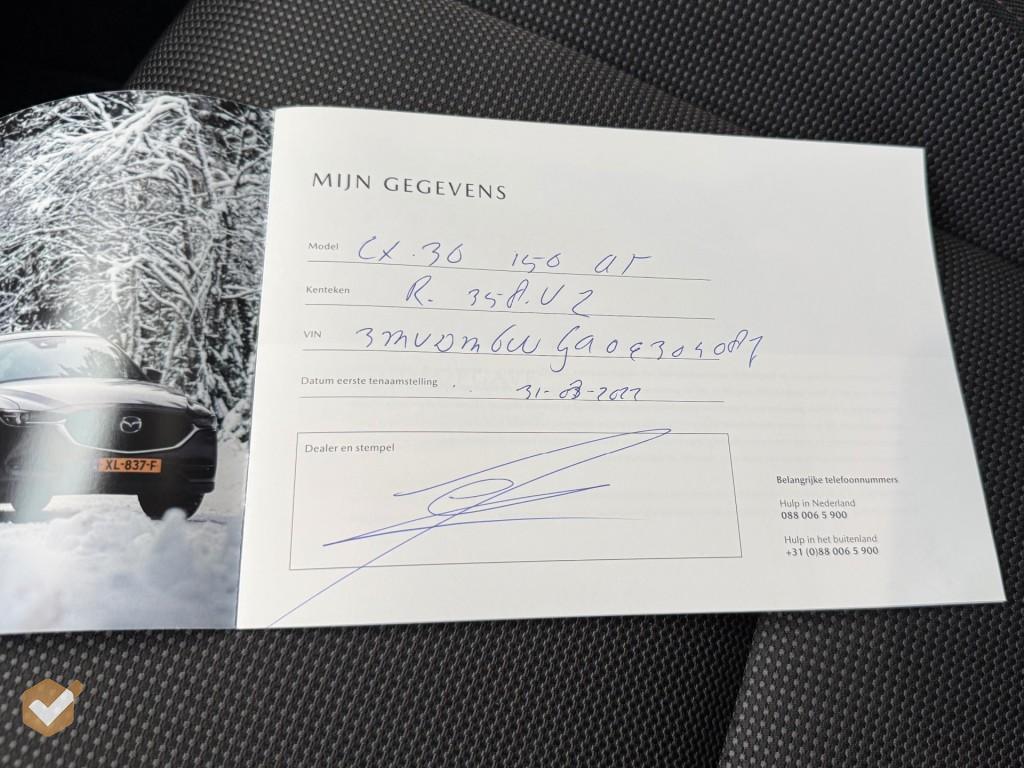 MIJN GEGEVENS
Model CX.30 150 AT
Kenteken R.358.VZ
VIN
Datum eerste tenaamstelling 31-03-2022
Dealer en stempel
Belangrijke telefoonnummers
Hulp in Nederland
088 006 5 900
Hulp in het buitenland
+31 (0)88 006 5 900
XL-837-F